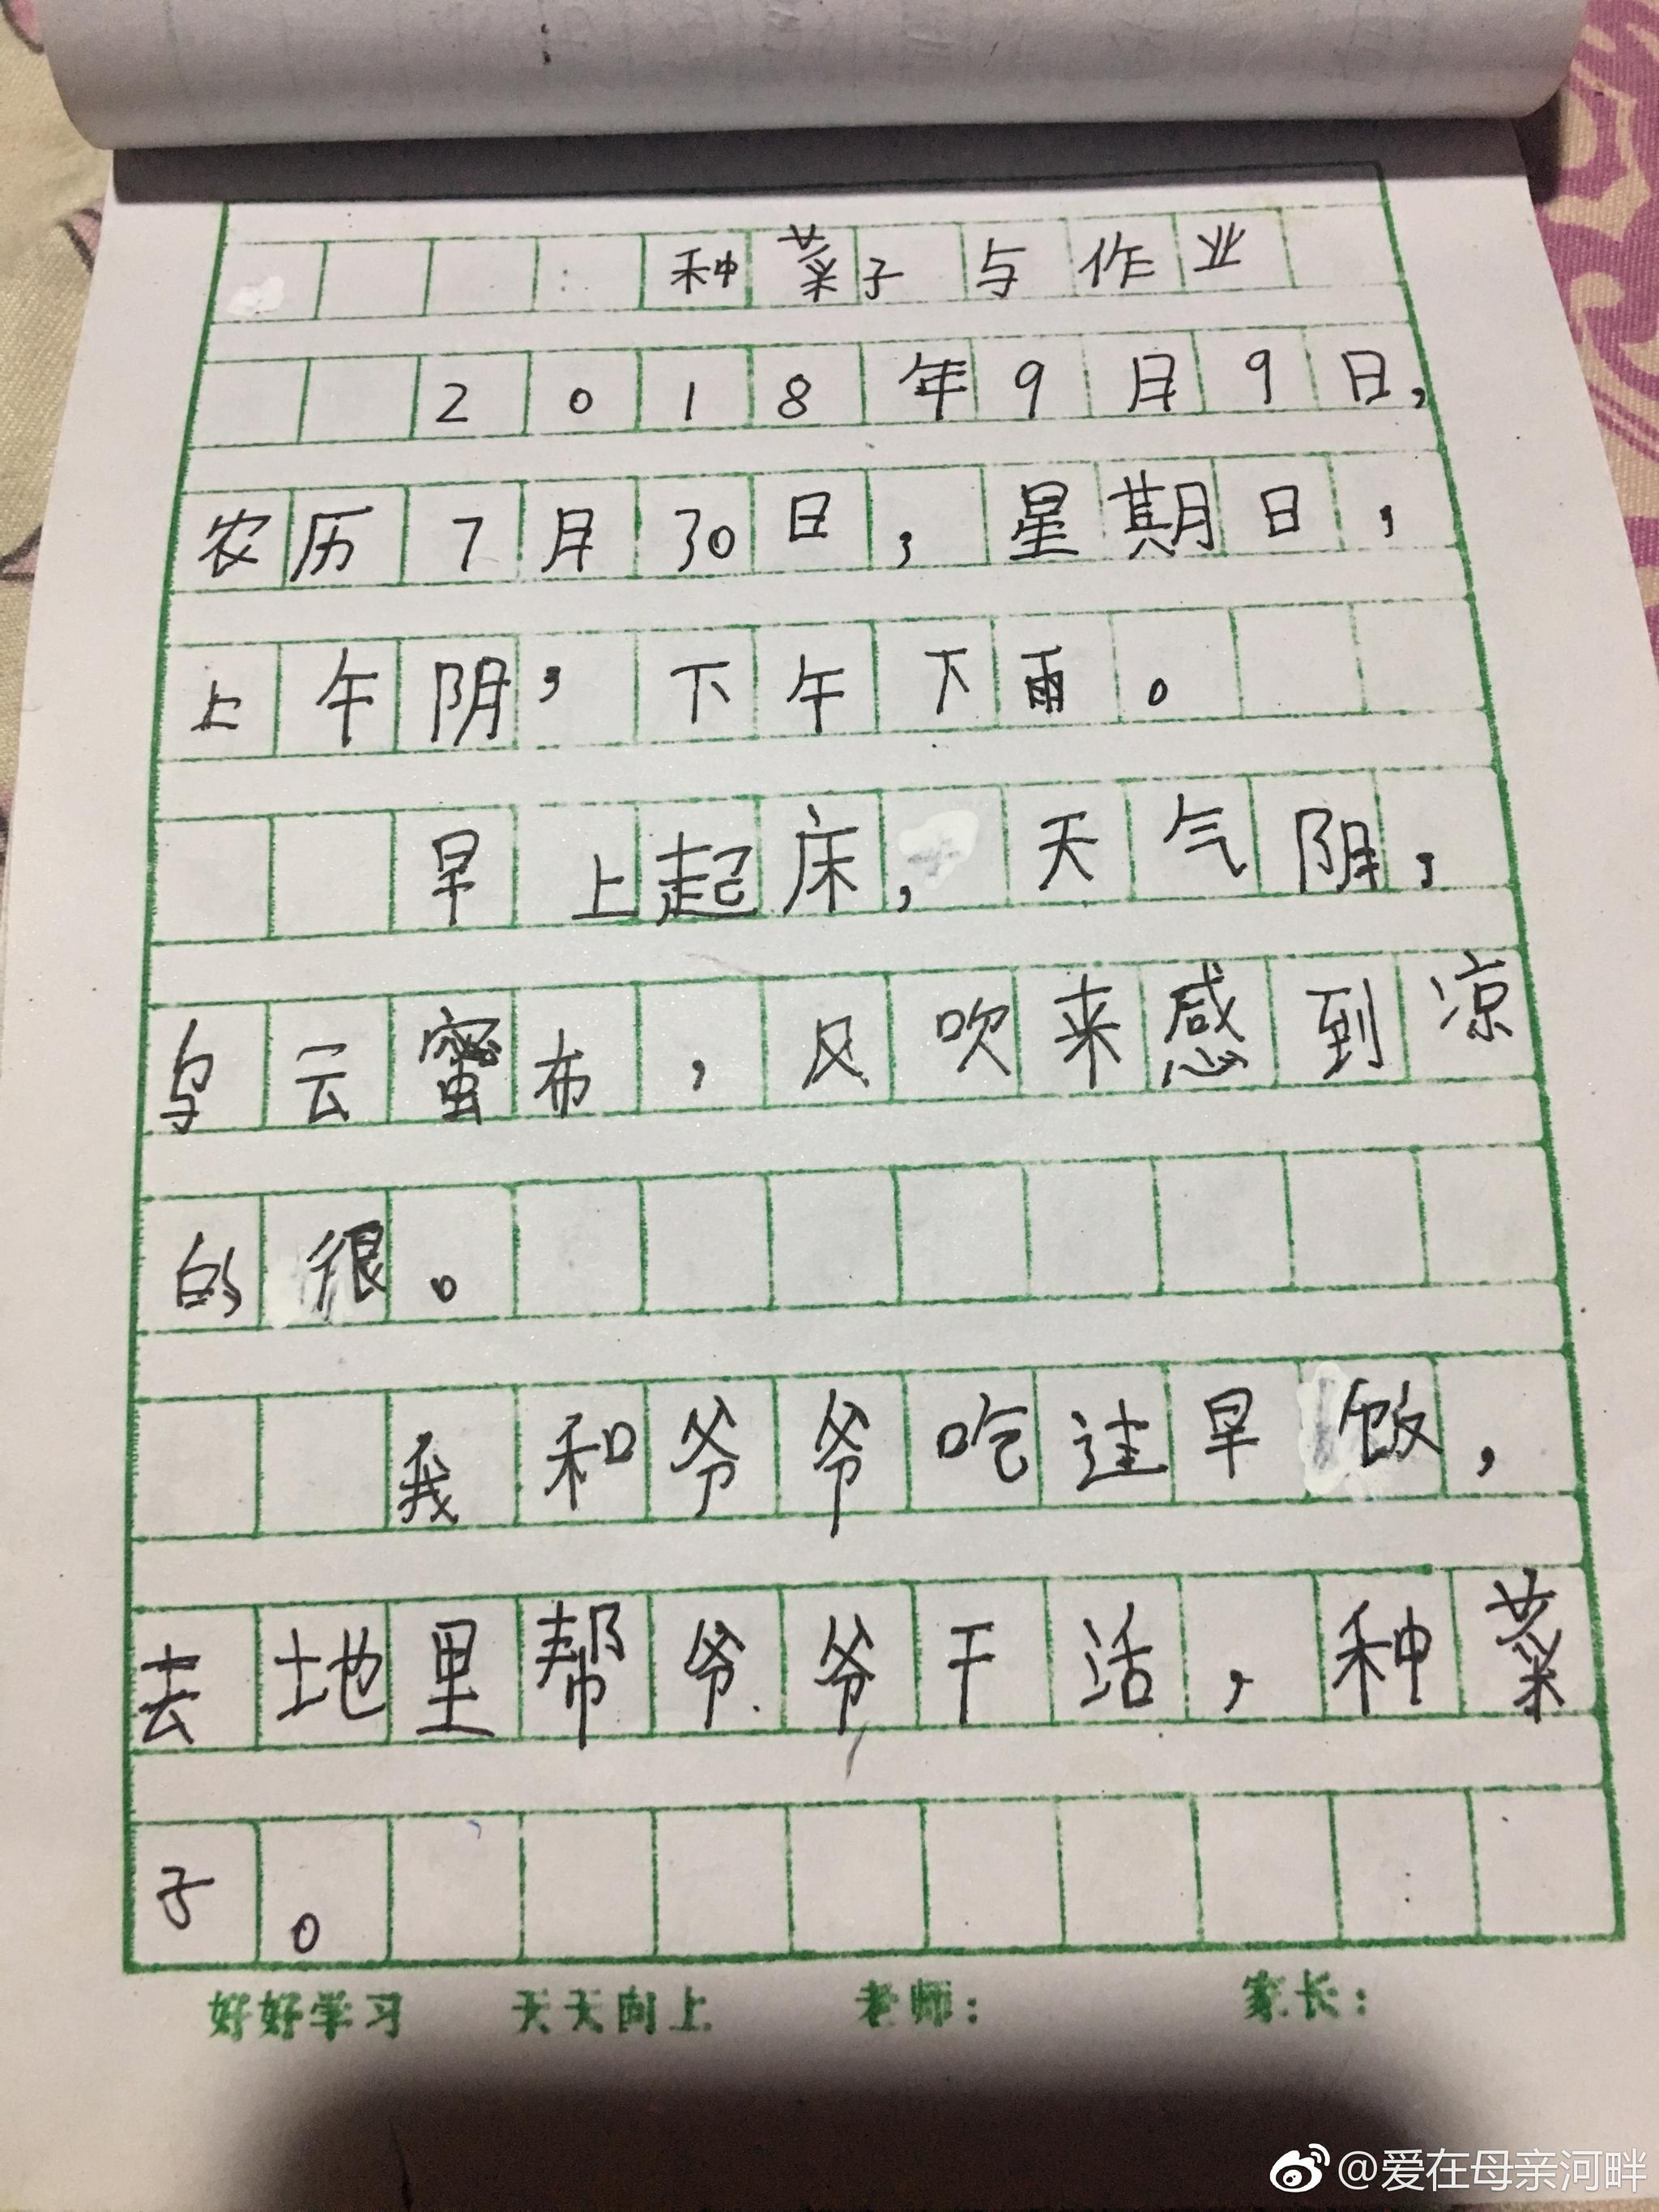 种菜子与作业
2018年9月9日,
农历7月30日,星期日,
上午阴,下午下雨。
早上起床,天气阴,
乌云蜜布,风吹来感到凉
的很。
我和爷爷吃过早饭,
去地里帮爷爷干活,种菜
子。
好好学习 天天向上 老师: 家长:
@爱在母亲河畔